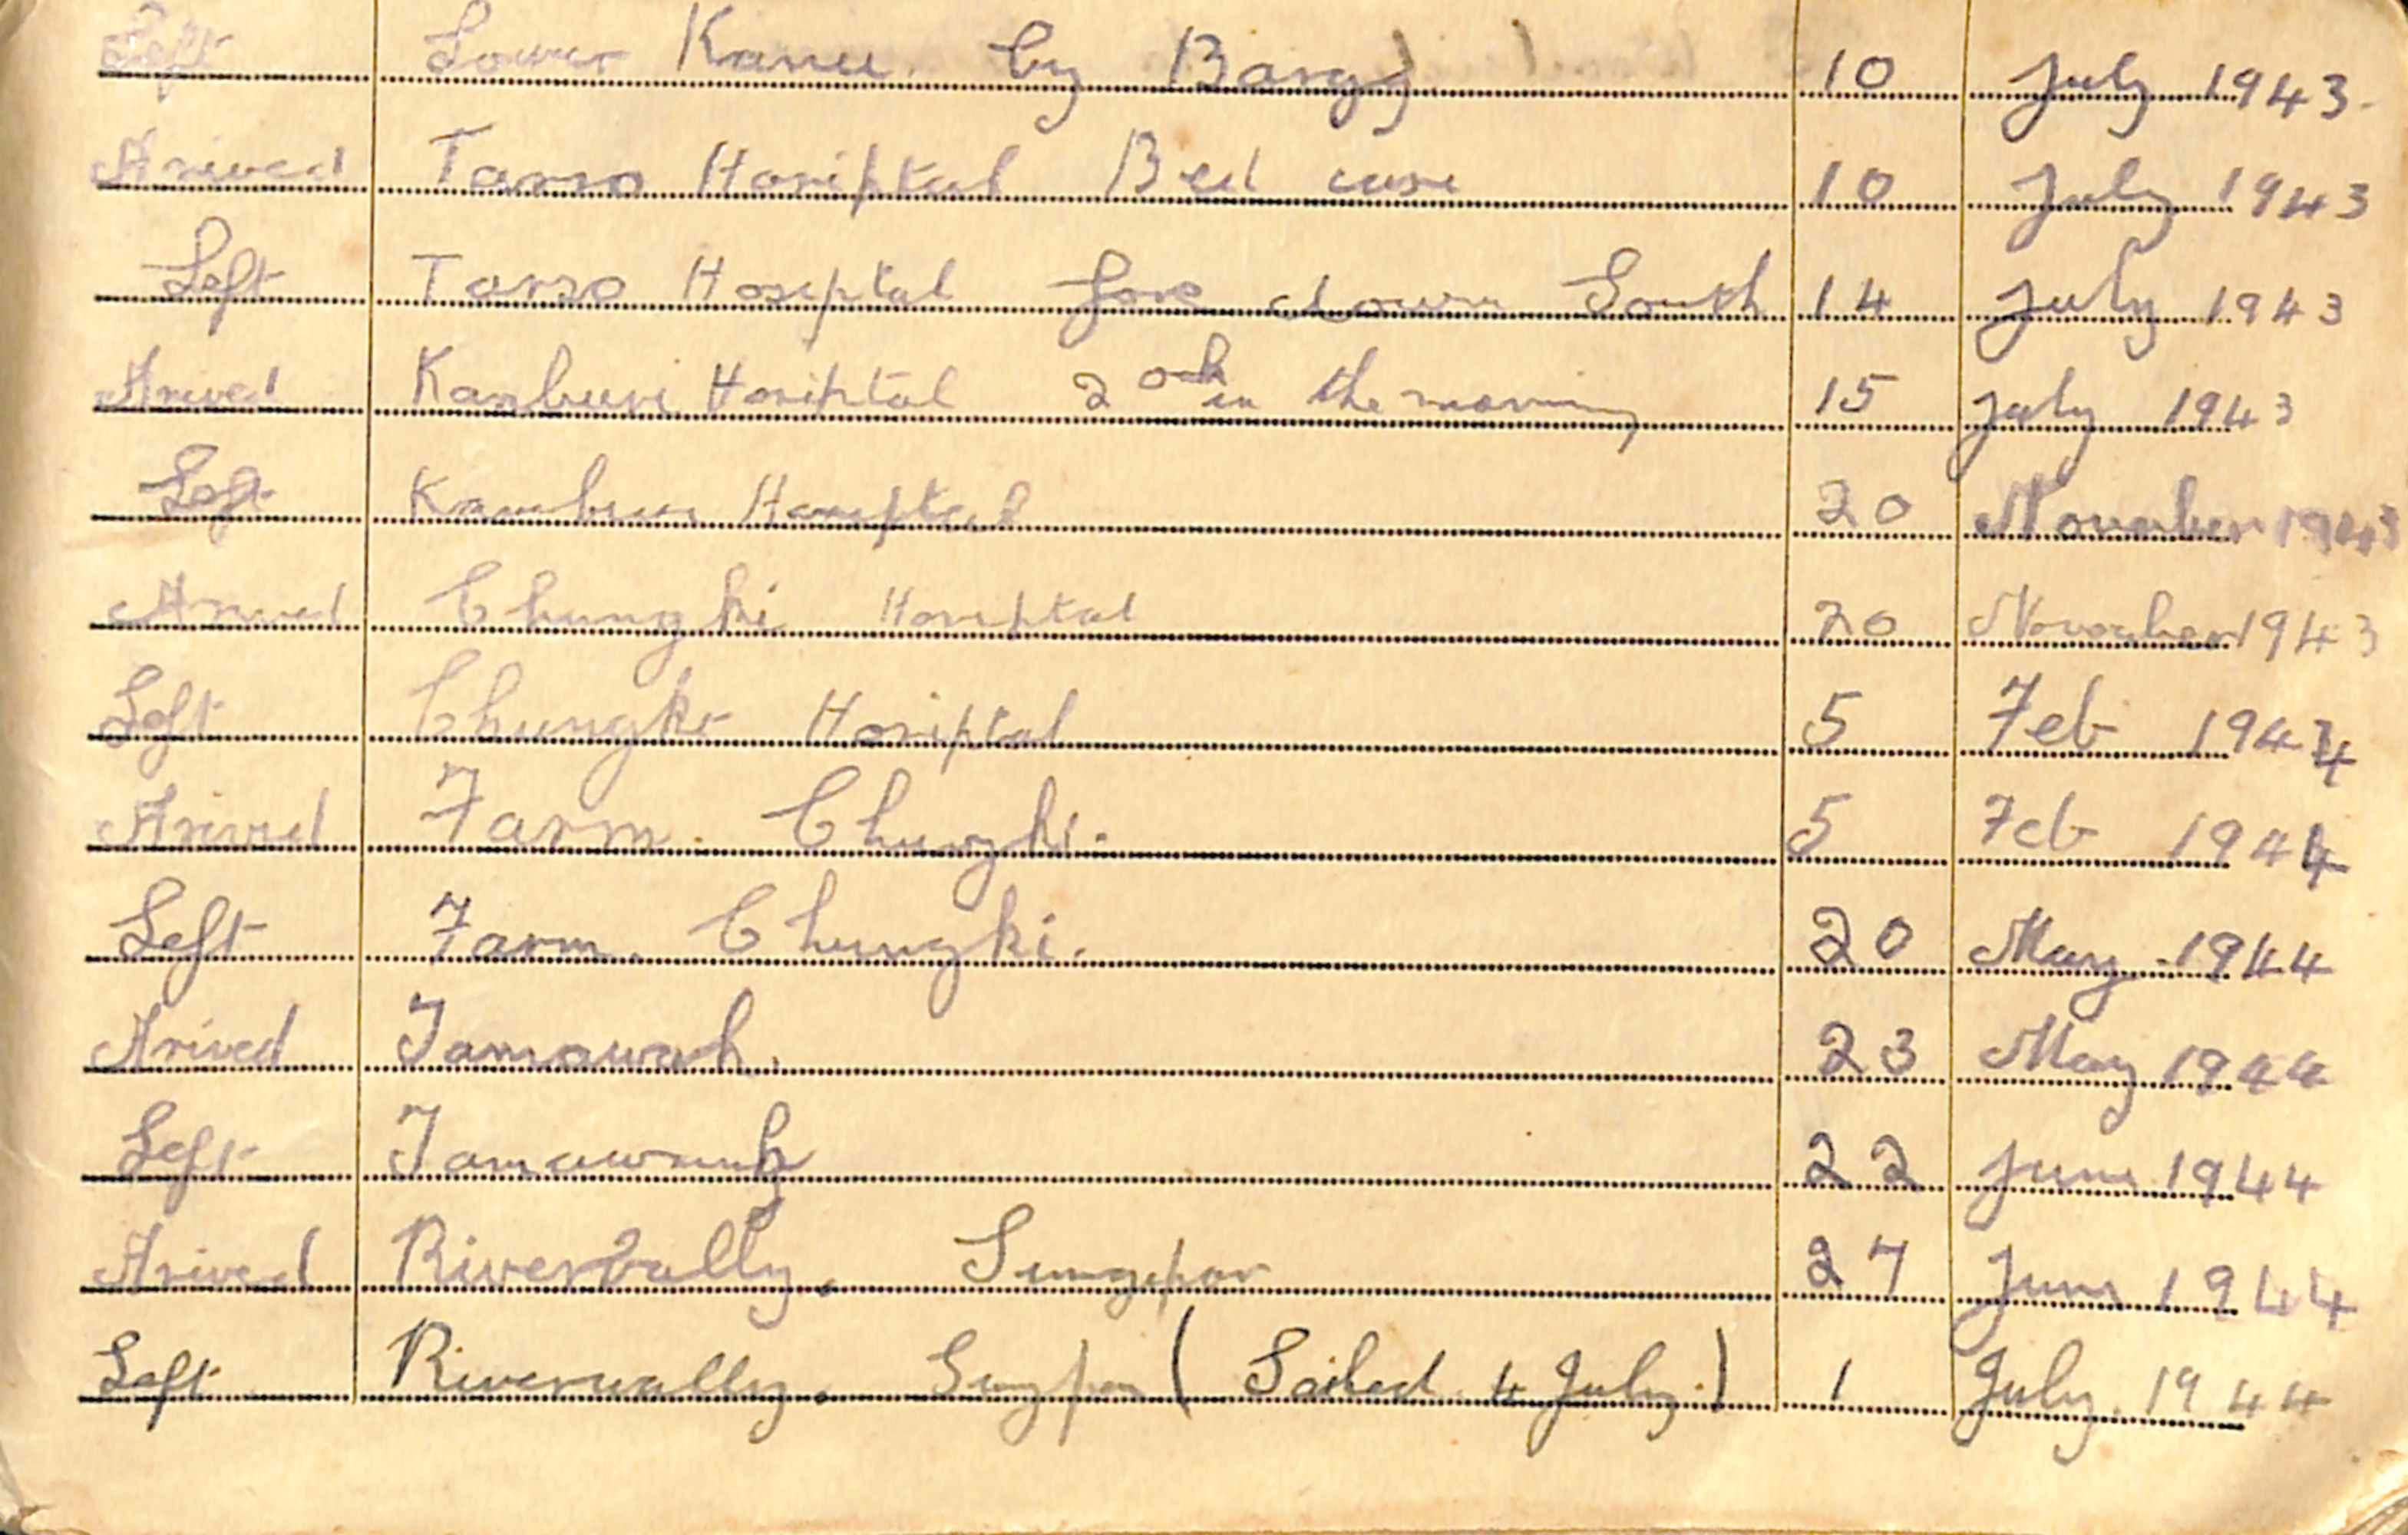 Left Lower Kanu. by Barg 10 July 1943.
Arived Tarso Horiptal Bed case 10 July 1943
Left Tarso Hosiptal fore down South 14 July 1943
Arived Kanburi Horiptal 2 ock in the morning 15 July 1943
Left Kanburi Horiptal 20 November 1943
Arived Chungki Horiptal 20 November 1943
Left Chungki Horiptal 5 Feb 1944
Arived Farm. Chungki. 5 Feb 1944
Left Farm. Chungki. 20 May 1944
Arived Tamawah. 23 May 1944
Left 22 June 1944
Arived Rivervally. Singepor 27 June 1944
Left Rivervally. (Sailed 4 July.) 1 July. 1944